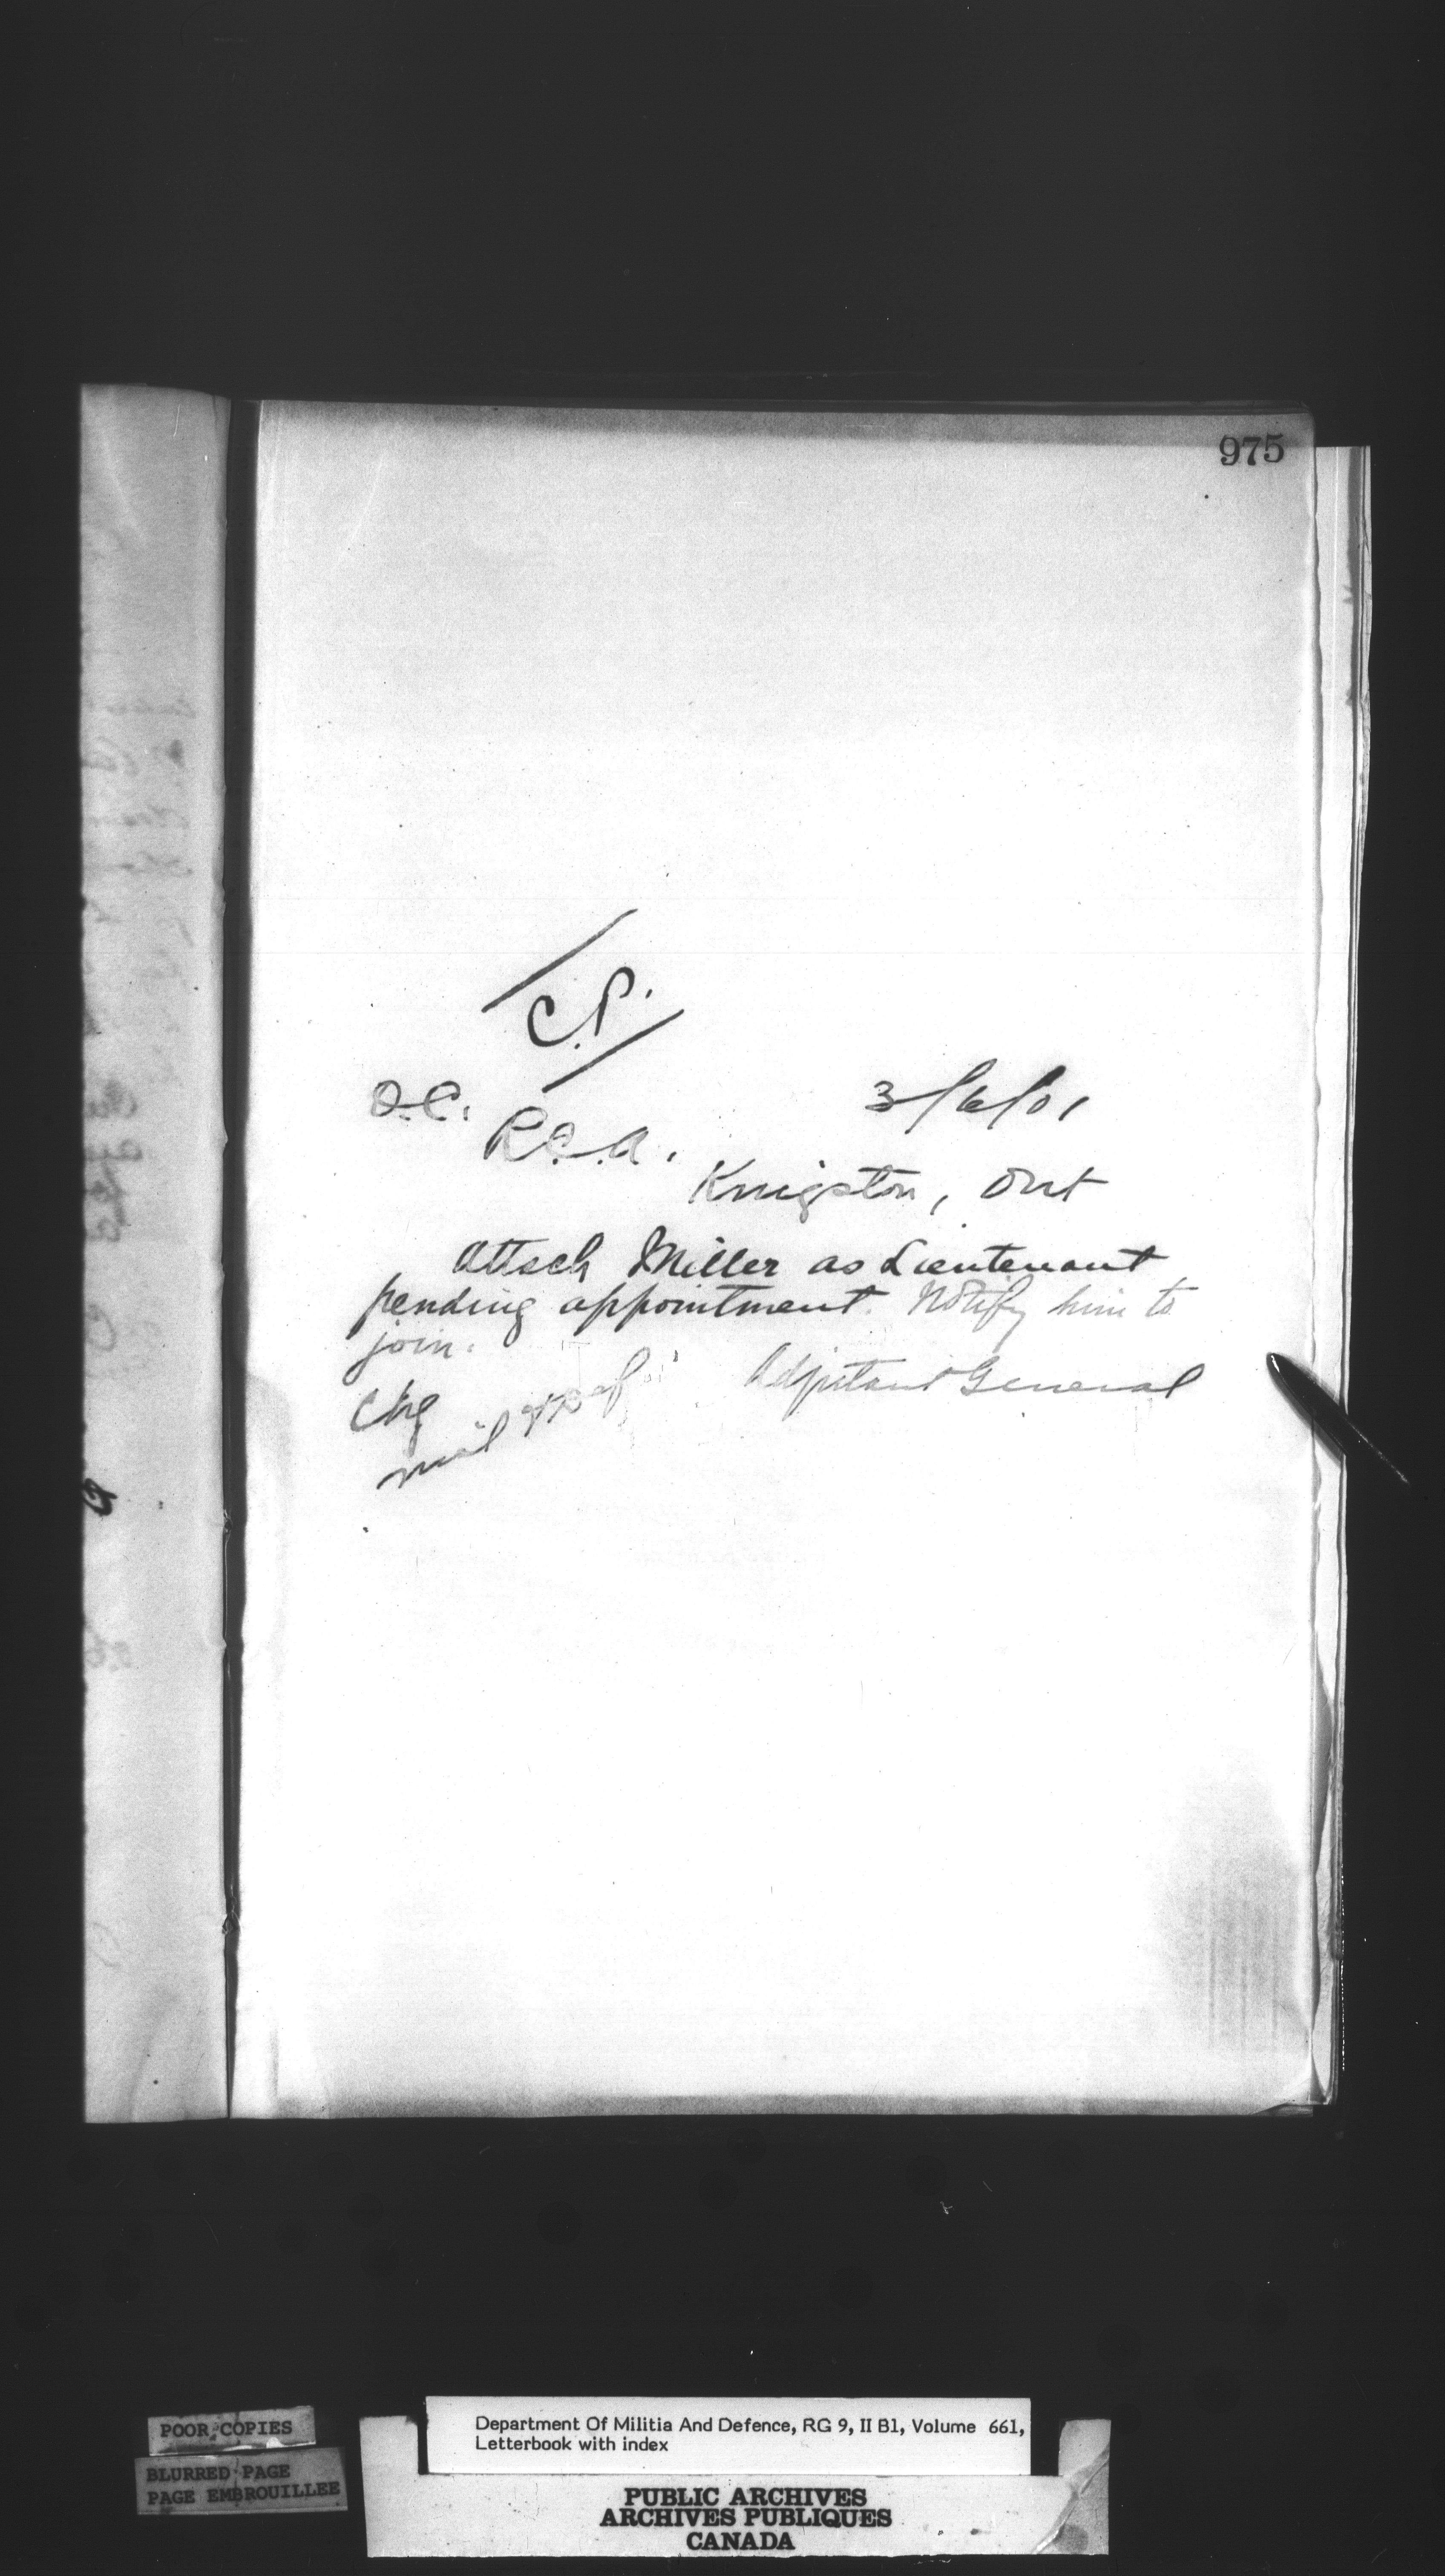 975
C.P.
O.C.
3/6/01
R.C.A.
Kingston, Ont
Attach Miller as Lieutenant
pending appointment. Notify him to
join.
Adjutant General
Chg
Mil & Def
POOR COPIES
BLURRED PAGE
PAGE EMBROUILLEE
Department Of Militia And Defence, RG 9, II B1, Volume 661,
Letterbook with index
PUBLIC ARCHIVES
ARCHIVES PUBLIQUES
CANADA